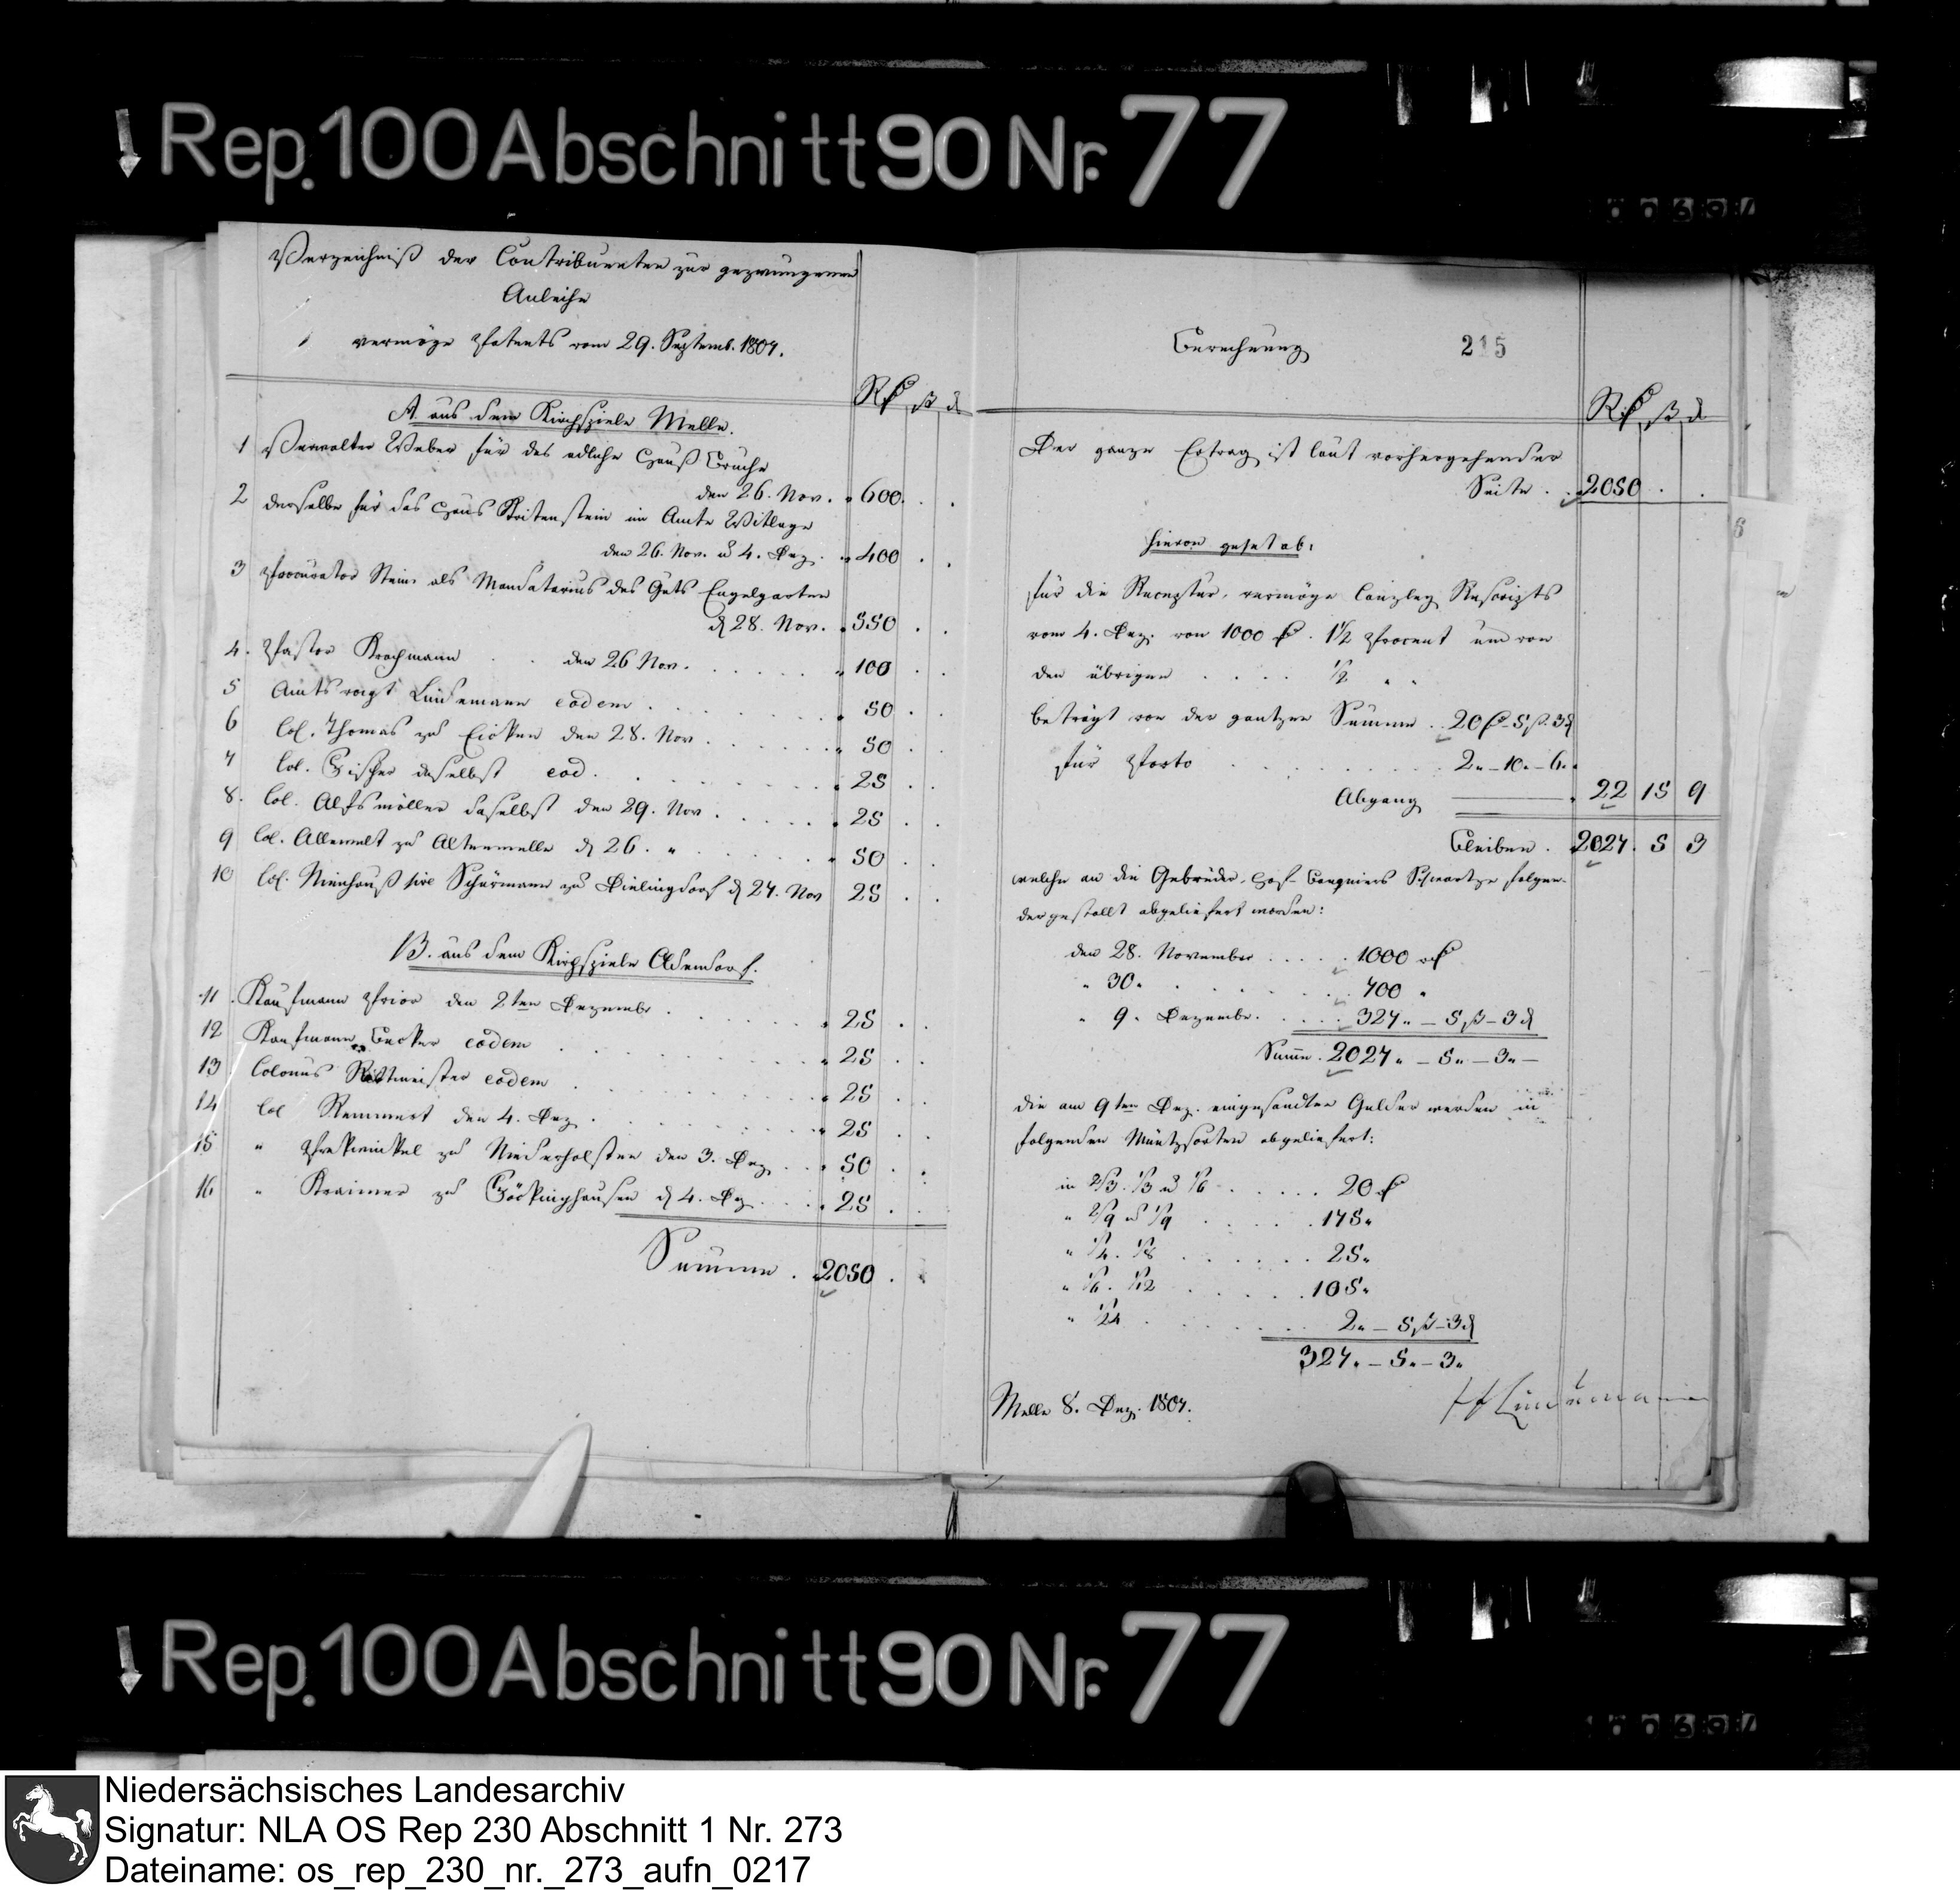 Rep. 100 Abschnitt 90 Nr. 77
Verzeichniß der Contribuenten zur gezwungenen
Anleihe
vermöge Patents vom 29. Septemb. 1807.
R₰ ß d
A. aus dem Kirchspiele Melle.
1 Verwalter Weber für das adliche Hauß Bruche
den 26. Nov. " 600.
2 derselbe für das Haus Krietenstein im Amte Witlage
den 26. Nov. u 4. Dez. " 400
3 Procurator Stein als Mandatarius des Guts Engelgarten
d 28. Nov. " 550
4. Pastor Krochmann den 26 Nov. " 100
5 Amtsvoigt Lindemann eodem " 50
6 Col. Thomas zu Eicken den 28. Nov " 50
7 Col. Fischer daselbst eod. " 25
8. Col. Alfsmöller daselbst den 29. Nov " 25
9 Col. Allewelt zu Altenmelle d 26. " " 50
10 Col. Nienhauß sive Schürmann zu Dielingdorf d 27. Nov 25
B. aus dem Kirchspiele Oldendorf.
11 Kaufmann Prior den 2ten Dezembr " 25
12 Kaufmann Becker eodem " 25
13 Colonus Rittmeister eodem " 25
14 Col Remmert den 4. Dez. " 25
15 " zu Niederholsten den 3. Dez. " 50
16 " Kraimer zu Föckinghausen d 4. Dez. " 25
Summe. 2050
Berechnung 215
R₰ ß d
Der ganze Ertrag ist laut vorhergehender
Seite. 2050
hievon gehet ab:
für die Receptur, vermöge Canzley Rescripts
vom 4. Dez. von 1000 ₰. 1½ Procent und von
den übrigen ½ " "
beträgt von der gantzen Summe 20 ₰ - 5 ß. 3 d
für Porto 2 " - 10 " - 6 "
Abgang 22 15 9
Bleiben. 2027. 5 3
welche an die Gebrüder, Hof-Banquiers Schwartze folgen-
dergestallt abgeliefert worden:
den 28. November 1000 r₰
" 30 " 700 "
" 9. Dezembr. 327 " - 5 ß - 3 d
Summ. 2027 " - 5 " - 3 " -
die am 9ten Dez. eingesandten Gelder werden in
folgenden Müntzsorten abgeliefert:
in 2/3. 1/3 u 1/6 20 ₰
" 2/9 u 1/9 175 "
" 1/4. 1/8 25 "
" 1/6. 1/12 105 "
" 1/24 2 " - 5 ß - 3 d
327 " - 5 " - 3 "
Melle 8. Dez. 1807.
Lindemann
Rep. 100 Abschnitt 90 Nr. 77
Niedersächsisches Landesarchiv
Signatur: NLA OS Rep 230 Abschnitt 1 Nr. 273
Dateiname: os_rep_230_nr._273_aufn_0217